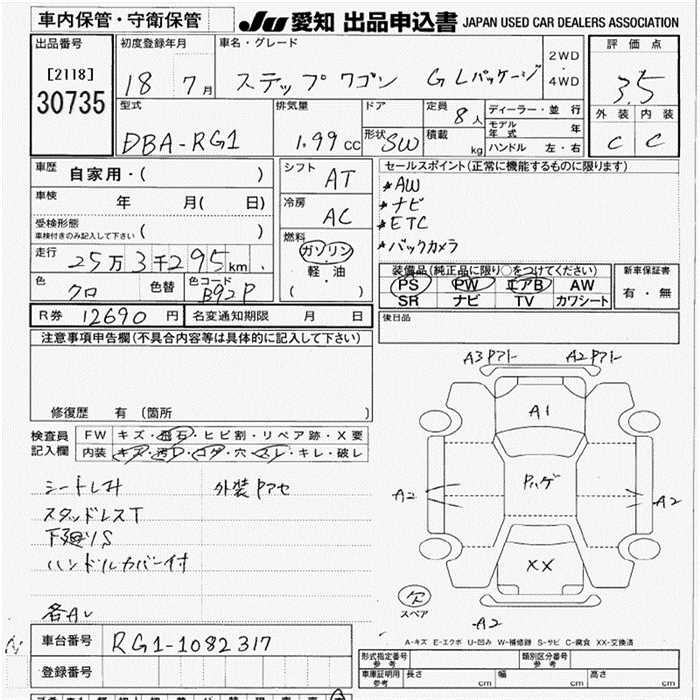 車内保管・守衛保管
JU 愛知 出品申込書 JAPAN USED CAR DEALERS ASSOCIATION
出品番号
[2118]
30735
初度登録年月
18 7月
車名・グレード
ステップワゴン GLパッケージ
2WD
・
4WD
評価点
3.5
外装 内装
C C
型式
DBA-RG1
排気量
1.99cc
ドア
形状 SW
定員
8人
積載
kg
ディーラー・並行
モデル年式 年
ハンドル 左・右
車歴 自家用・( )
車検 年 月( 日)
受検形態
車検付きのみ記入して下さい ( )
走行 25万3千295km
色 クロ 色替 色コード B92P
シフト AT
冷房 AC
燃料
ガソリン
・
軽・油
( )
セールスポイント(正常に機能するものに限ります)
*AW
*ナビ
*ETC
*バックカメラ
装備品(純正品に限り○をつけてください)
PS PW エアB AW
SR ナビ TV カワシート
新車保証書
有・無
R券 12690円 名変通知期限 月 日
後日品
注意事項申告欄(不具合内容等は具体的に記入して下さい)
修復歴 有 (箇所 )
検査員記入欄
FW キズ・飛石・ヒビ割・リペア跡・X要
内装 キズ・汚れ・コゲ・穴・スレ・キレ・破レ
シートレス 外装Pアセ
スタッドレスT
下廻りS
ハンドルカバー付
各AL
A3Pアト A2Pアト
A1
Pハゲ
A2 A2
XX
欠
スペア
A2
A-キズ E-エクボ U-凹み W-補修跡 S-サビ C-腐食 XX-交換済
車台番号 RG1-1082317
登録番号
形式指定番号 参考
類別区分番号 参考
車庫証明用 参考 長さ cm 幅 cm 高さ cm